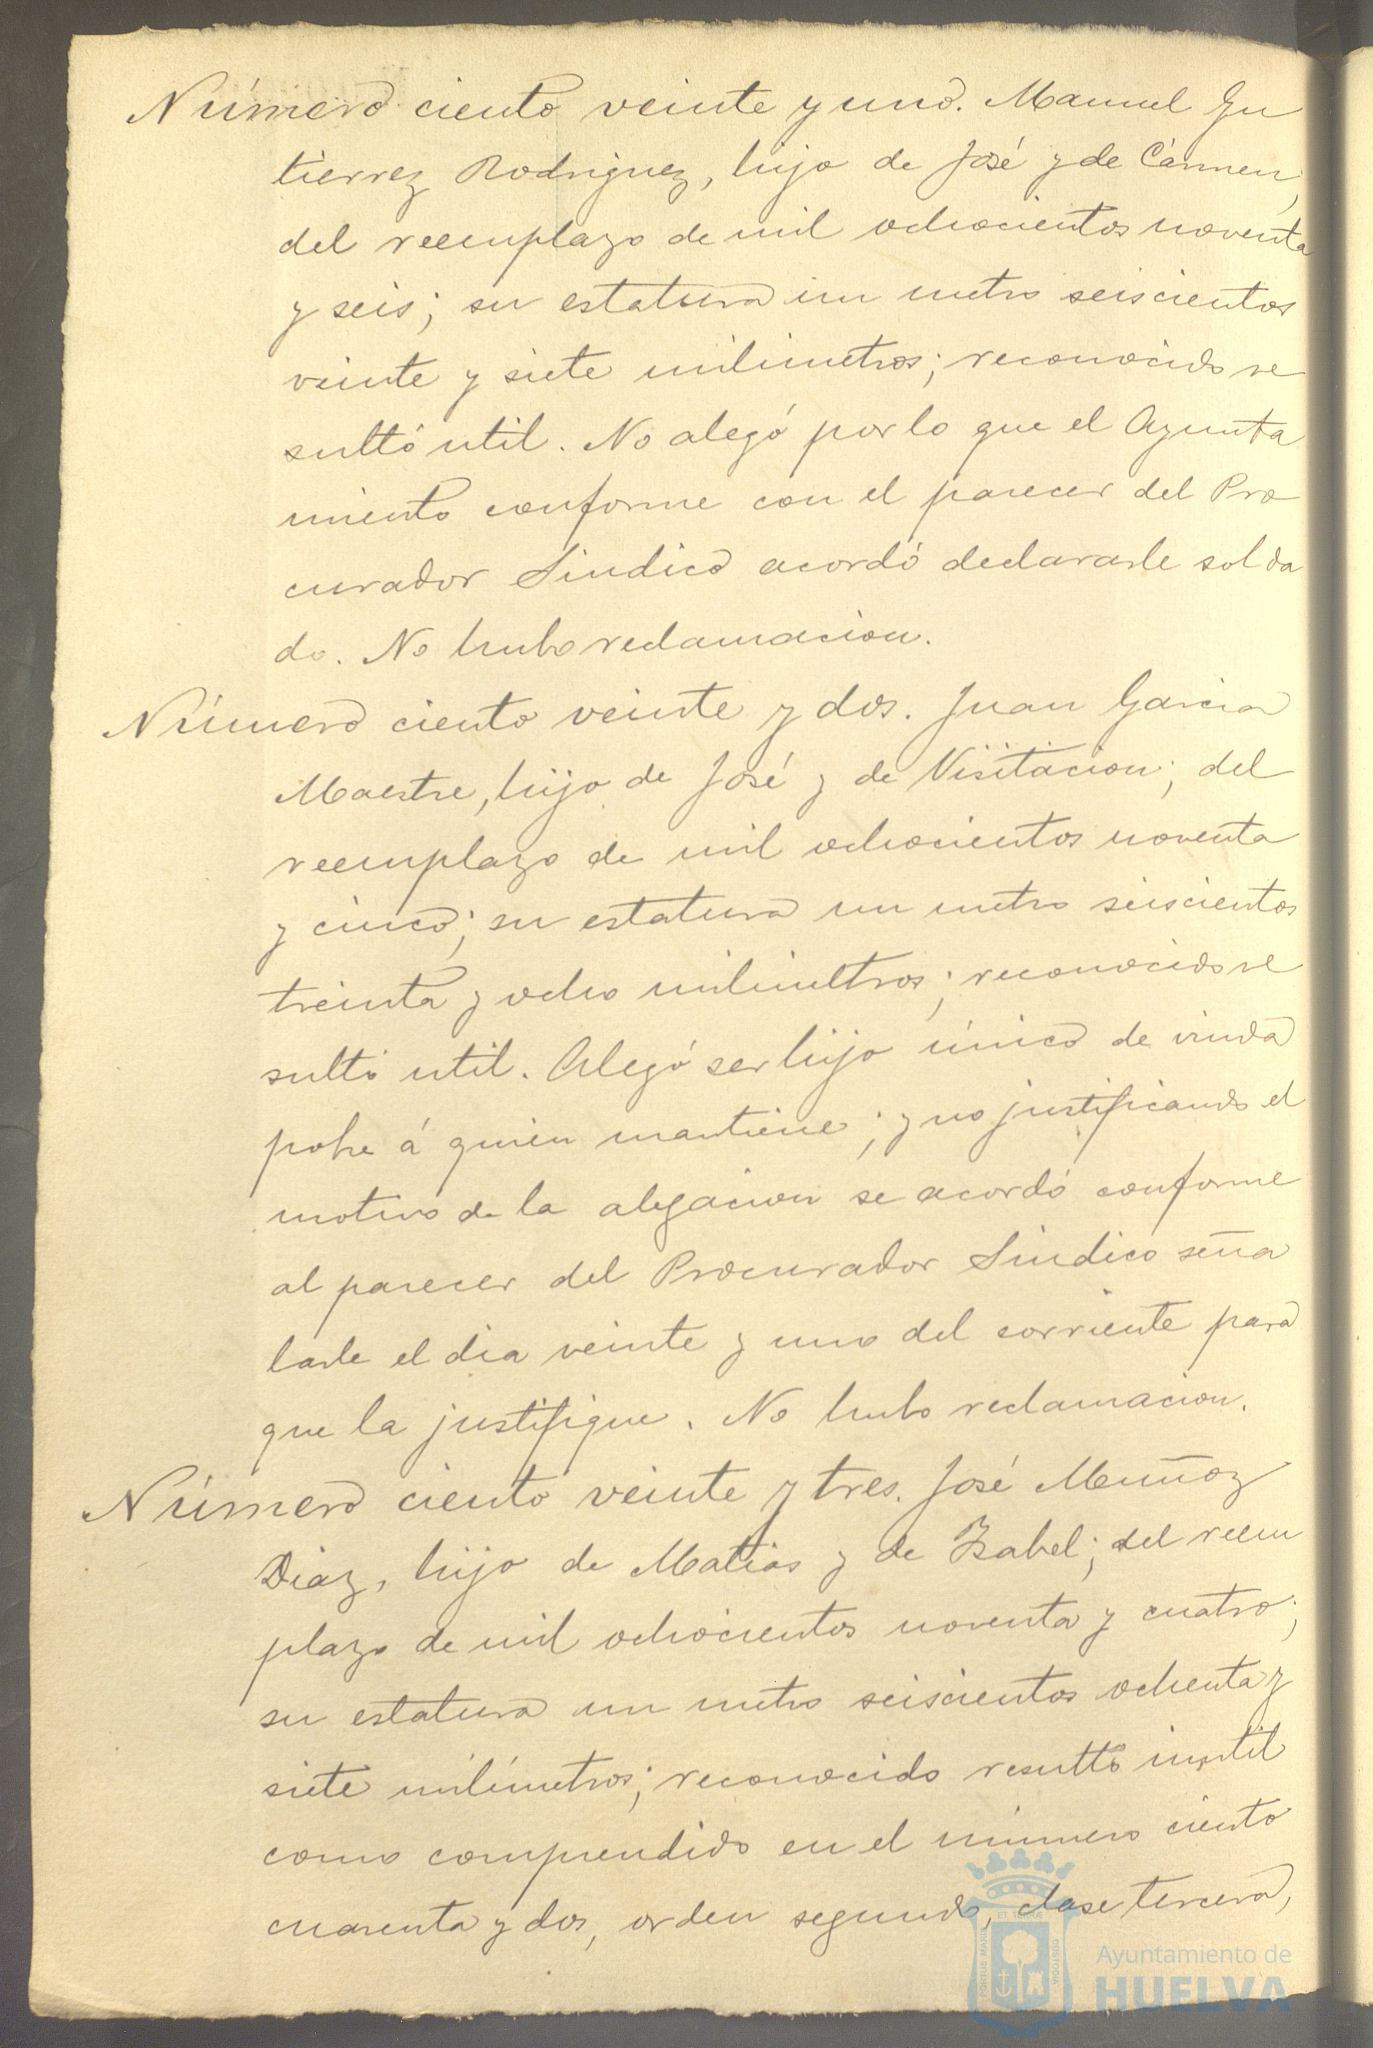 Número ciento veinte y uno. Manuel Gu
tierrez Rodriguez, hijo de José y de Cármen,
del reemplazo de mil ochocientos noventa
y seis; su estatura un metro seiscientos
veinte y siete milimetros; reconocido re
sultó util. No alegó por lo que el Ayunta
miento conforme con el parecer del Pro
curador Sindico acordó declararle solda
do. No hubo reclamacion.
Número ciento veinte y dos. Juan Garcia
Maestre, hijo de José y de Visitacion; del
reemplazo de mil ochocientos noventa
y cinco; su estatura un metro seiscientos
treinta y ocho milimetros; reconocido re
sultó util. Alegó ser hijo único de viuda
pobre á quien mantiene; y no justificando el
motivo de la alegacion se acordó conforme
al parecer del Procurador Sindico seña
larle el dia veinte y uno del corriente para
que la justifique. No hubo reclamacion.
Número ciento veinte y tres. José Muñoz
Diaz, hijo de Matias y de Isabel; del reem
plazo de mil ochocientos noventa y cuatro;
su estatura un metro seiscientos ochenta y
siete milímetros; reconocido resultó inutil
como comprendido en el número ciento
cuarenta y dos, orden segundo, clase tercera,
Ayuntamiento de
HUELVA